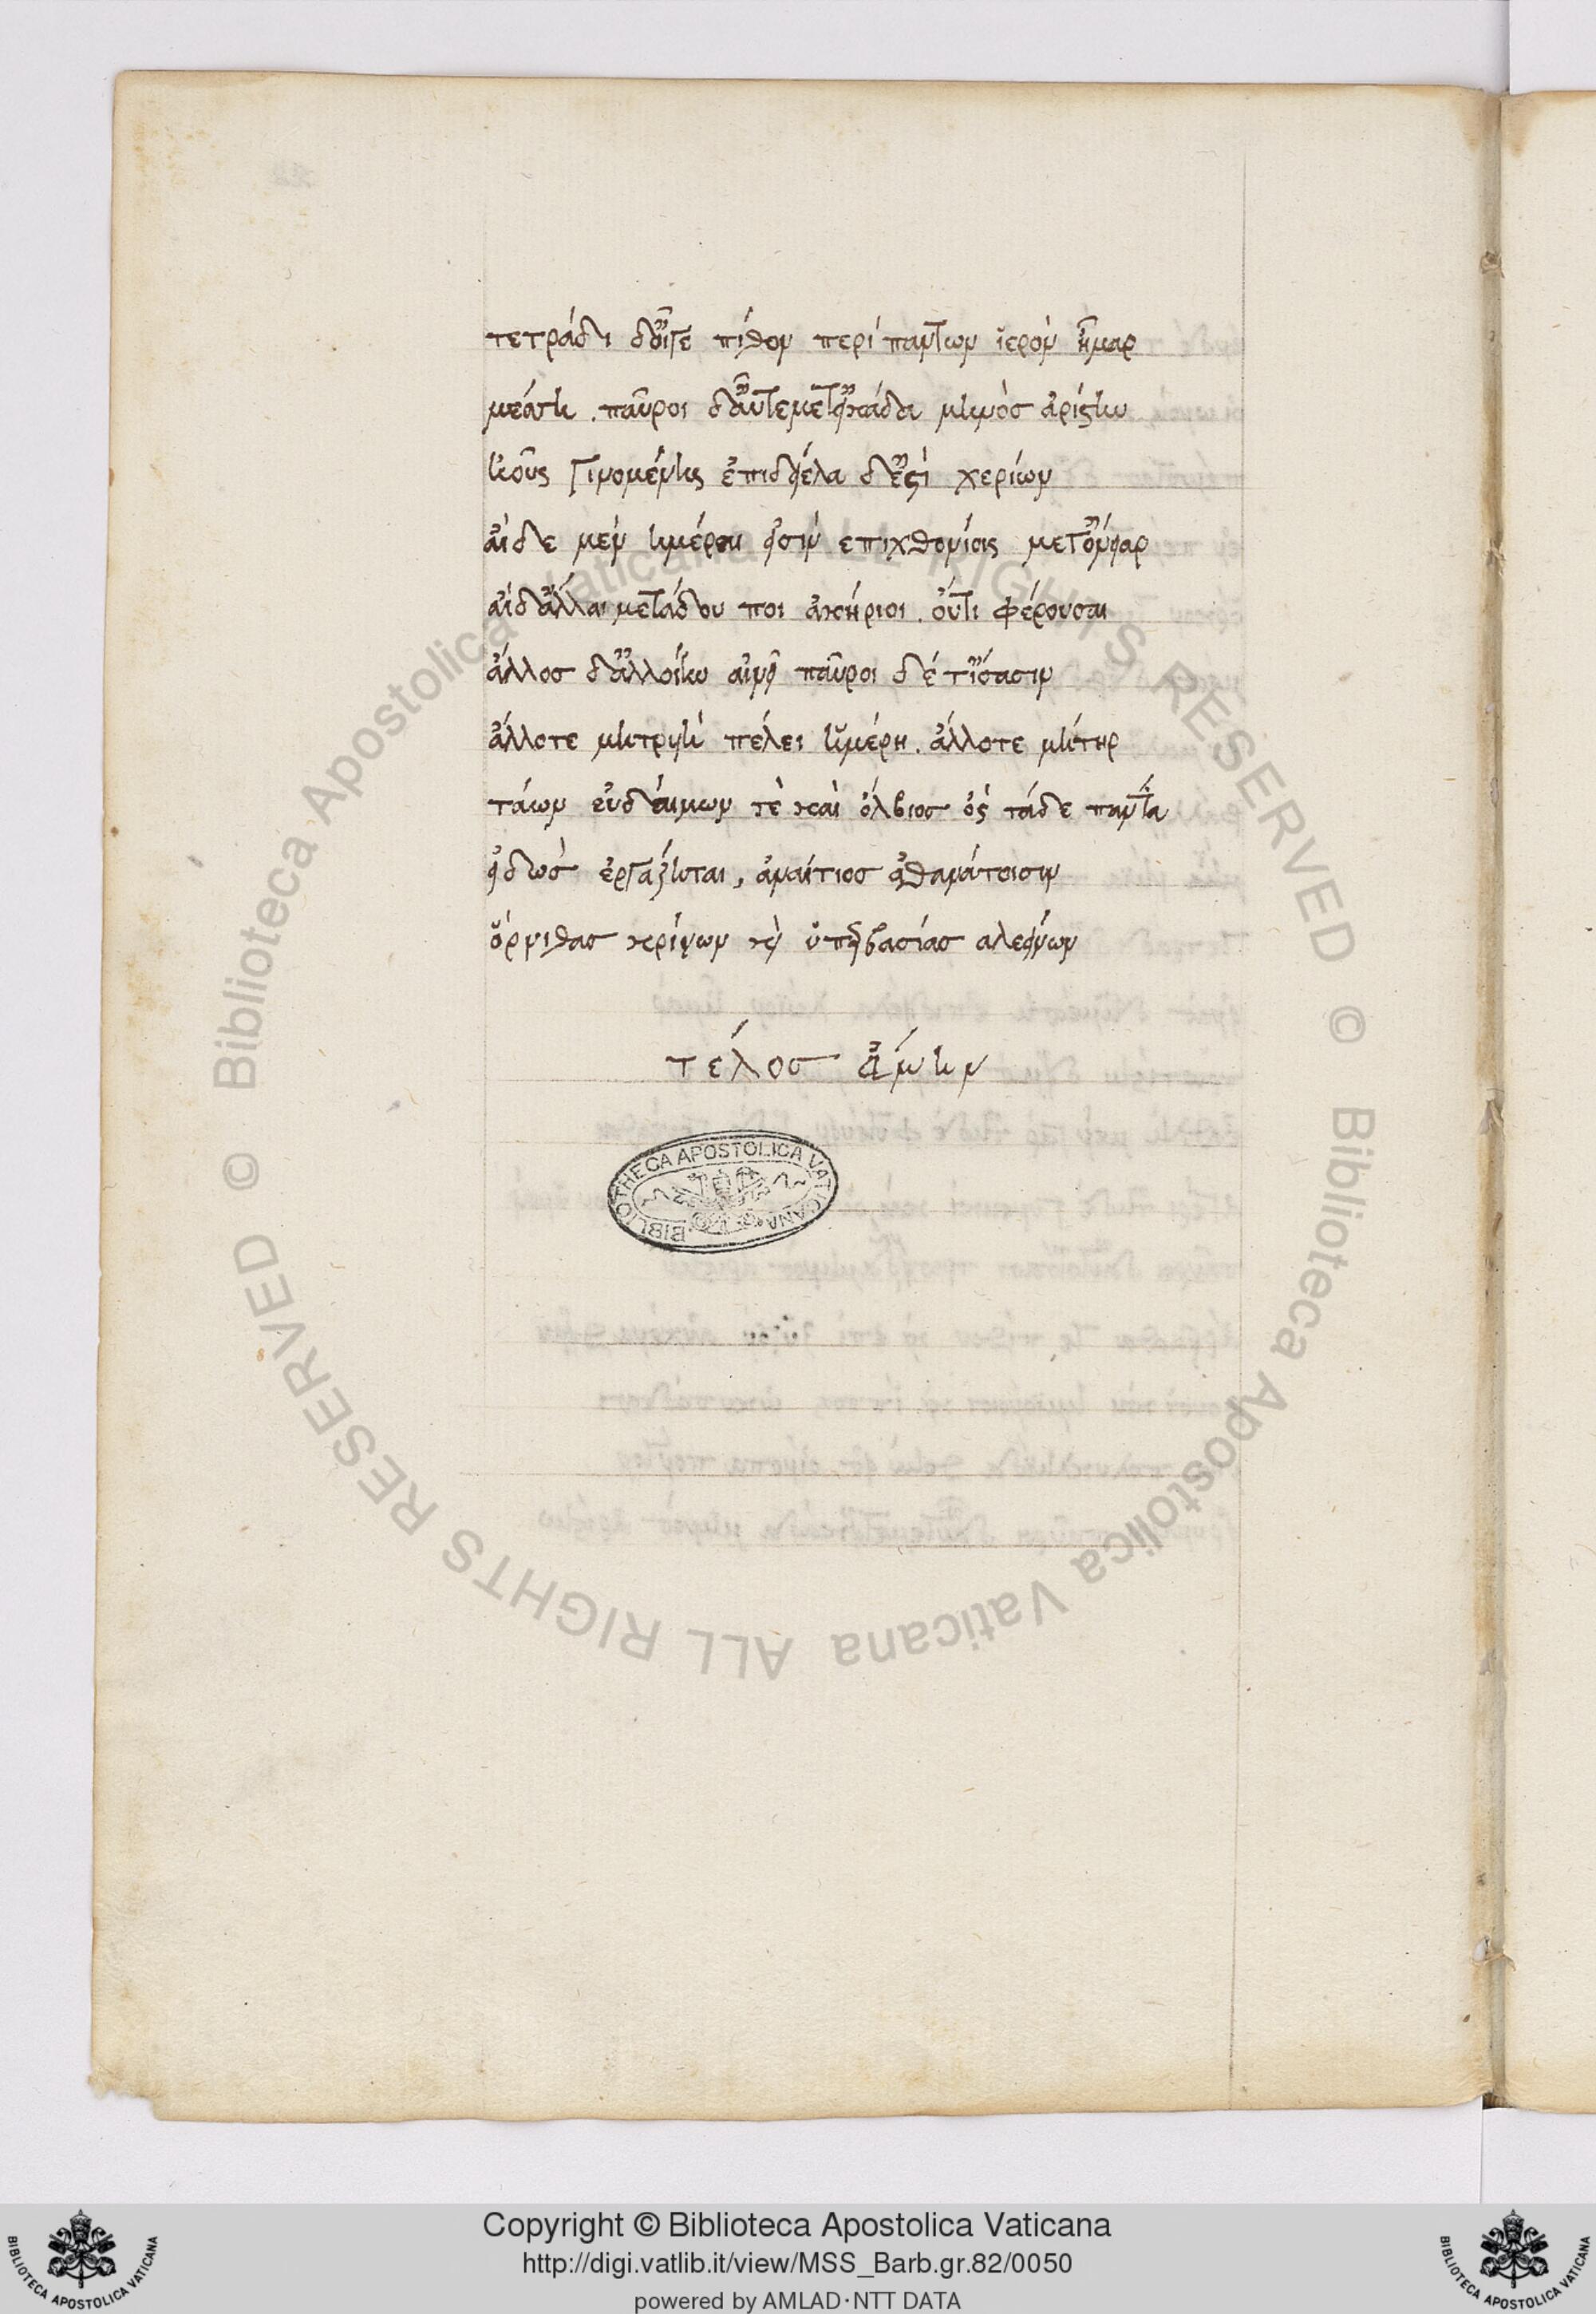 τετράδι δ' οἶγε πίθον περὶ πάντων ἱερὸν ἦμαρ
μέσση. παῦροι δ' αὖτε μετ' εἰκάδα μηνὸς ἀρίστην
ἠοῦς γινομένης ἐπιδείελα δ' ἐστὶ χερίων
αἵδε μὲν ἡμέραι εἰσὶν ἐπιχθονίοις μετ' ὄνειαρ
αἱ δ' ἄλλαι μετάδουποι ἀκήριοι. οὔτι φέρουσαι
ἄλλος δ' ἀλλοίην αἰνεῖ παῦροι δέ τ' ἴσασιν
ἄλλοτε μητρυιὴ πέλει ἡμέρη. ἄλλοτε μήτηρ
τάων εὐδαίμων τὲ καὶ ὄλβιος ὃς τάδε πάντα
εἰδὼς ἐργάζηται, ἀναίτιος ἀθανάτοισιν
ὄρνιθας κρίνων κὶ ὑπερβασίας αλεείνων
τέλος ἀμήν
BIBLIOTHECA APOSTOLICA VATICANA
© Biblioteca Apostolica Vaticana ALL RIGHTS RESERVED
© Biblioteca Apostolica Vaticana ALL RIGHTS RESERVED
BIBLIOTECA APOSTOLICA VATICANA
Copyright © Biblioteca Apostolica Vaticana
http://digi.vatlib.it/view/MSS_Barb.gr.82/0050
powered by AMLAD·NTT DATA
BIBLIOTECA APOSTOLICA VATICANA